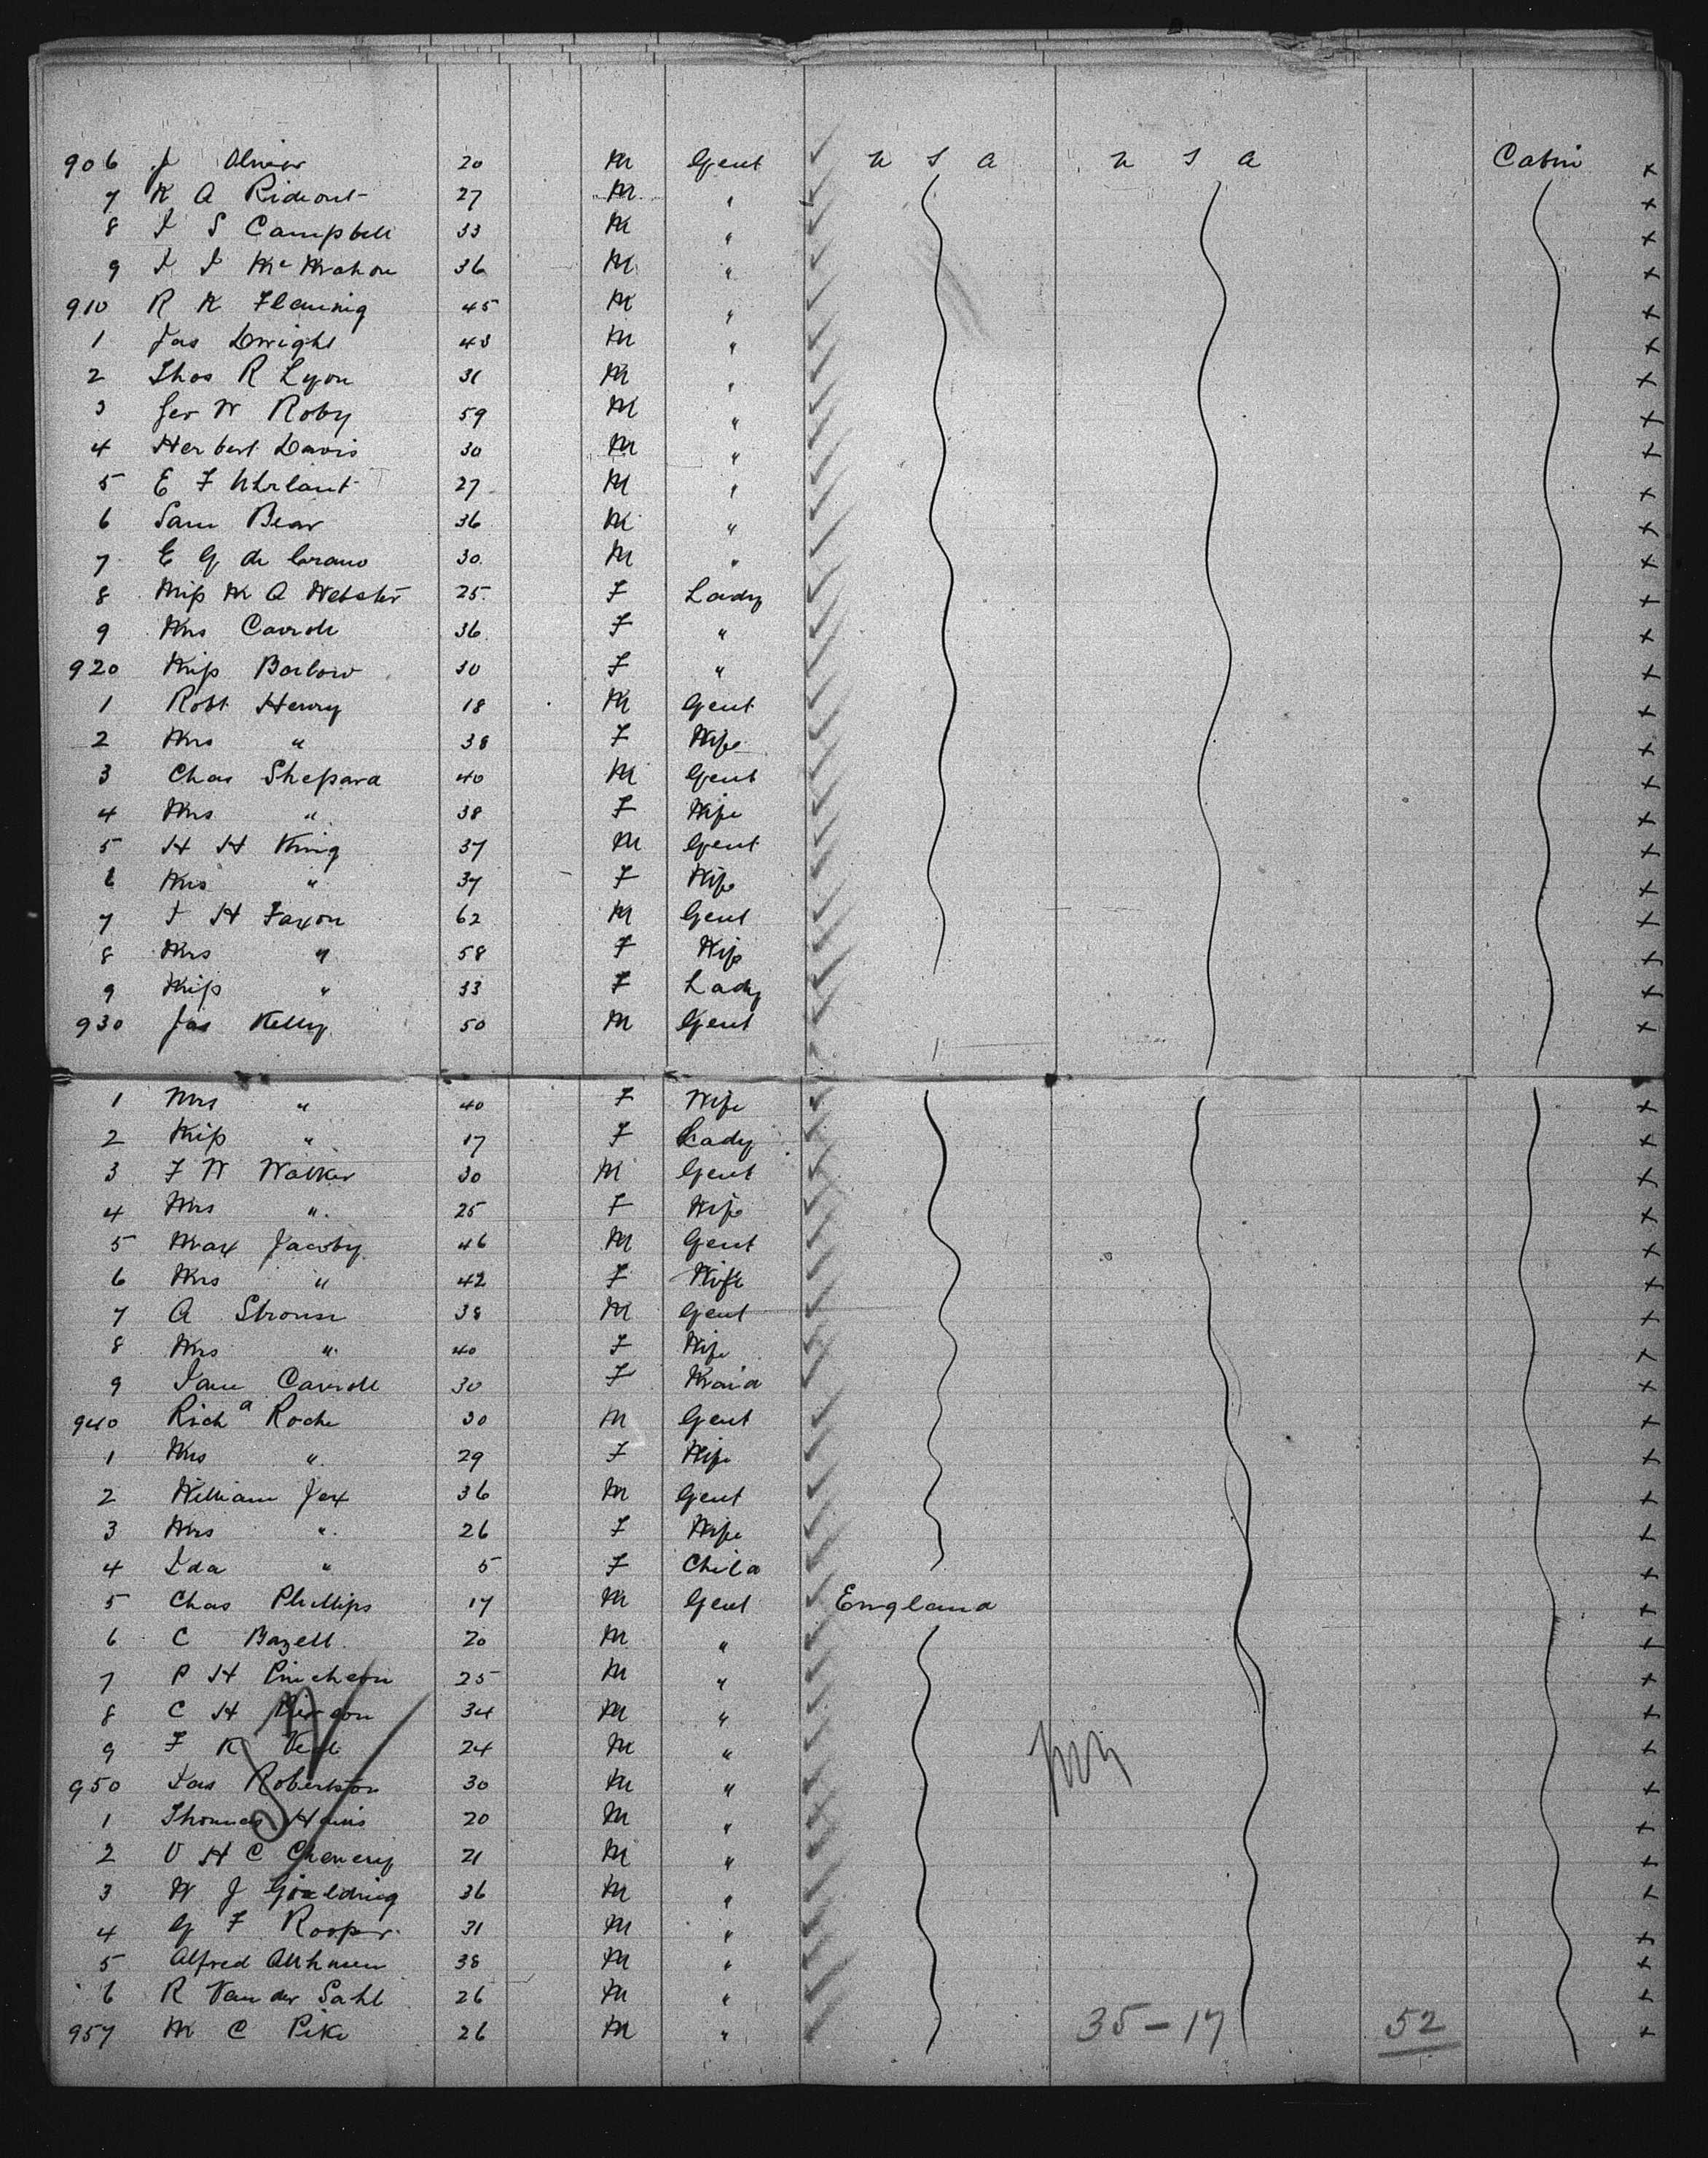 906 J Olivier 20 M Gent U S A U S A Cabin x
7 K A Rideout 27 M " x
8 J S Campbell 33 M " x
9 J J McMahon 36 M " x
910 R K Fleming 45 M " x
1 Jas Dwight 43 M " x
2 Thos R Lyon 31 M " x
3 Geo W Roby 59 M " x
4 Herbert Davis 30 M " x
5 E F 27 M " x
6 Sam Bear 36 M " x
7 E G de 30 M " x
8 Miss M A Webster 25 F Lady x
9 Mrs Carroll 36 F " x
920 Miss Barlow 30 F " x
1 Robt Henry 18 M Gent x
2 Mrs " 38 F Wife x
3 Chas Shepard 40 M Gent x
4 Mrs " 38 F Wife x
5 H H King 37 M Gent x
6 Mrs " 37 F Wife x
7 J H Faxon 62 M Gent x
8 Mrs " 58 F Wife x
9 Miss " 33 F Lady x
930 Jas Kelly 50 M Gent x
1 Mrs " 40 F Wife x
2 Miss " 17 F Lady x
3 F W Walker 30 M Gent x
4 Mrs " 25 F Wife x
5 Max Jacoby 46 M Gent x
6 Mrs " 42 F Wife x
7 A Strouse 38 M Gent x
8 Mrs " 40 F Wife x
9 Jane Carroll 30 F Maid x
940 Richd Roche 30 M Gent x
1 Mrs " 29 F Wife x
2 William Jex 36 M Gent x
3 Mrs " 26 F Wife x
4 Ida " 5 F Child x
5 Chas Phillips 17 M Gent England x
6 C Bazell 20 M " x
7 P H Pincheon 25 M " x
8 C H 34 M " x
9 F K 24 M " x
950 Jas Robertson 30 M " x
1 Thomas 20 M " x
2 O H C Chenery 21 M " x
3 W J Goulding 36 M " x
4 G F Rooper 31 M " x
5 Alfred 38 M " x
6 R Van der Sahl 26 M " x
957 M C Pike 26 M " 35-17 52 x